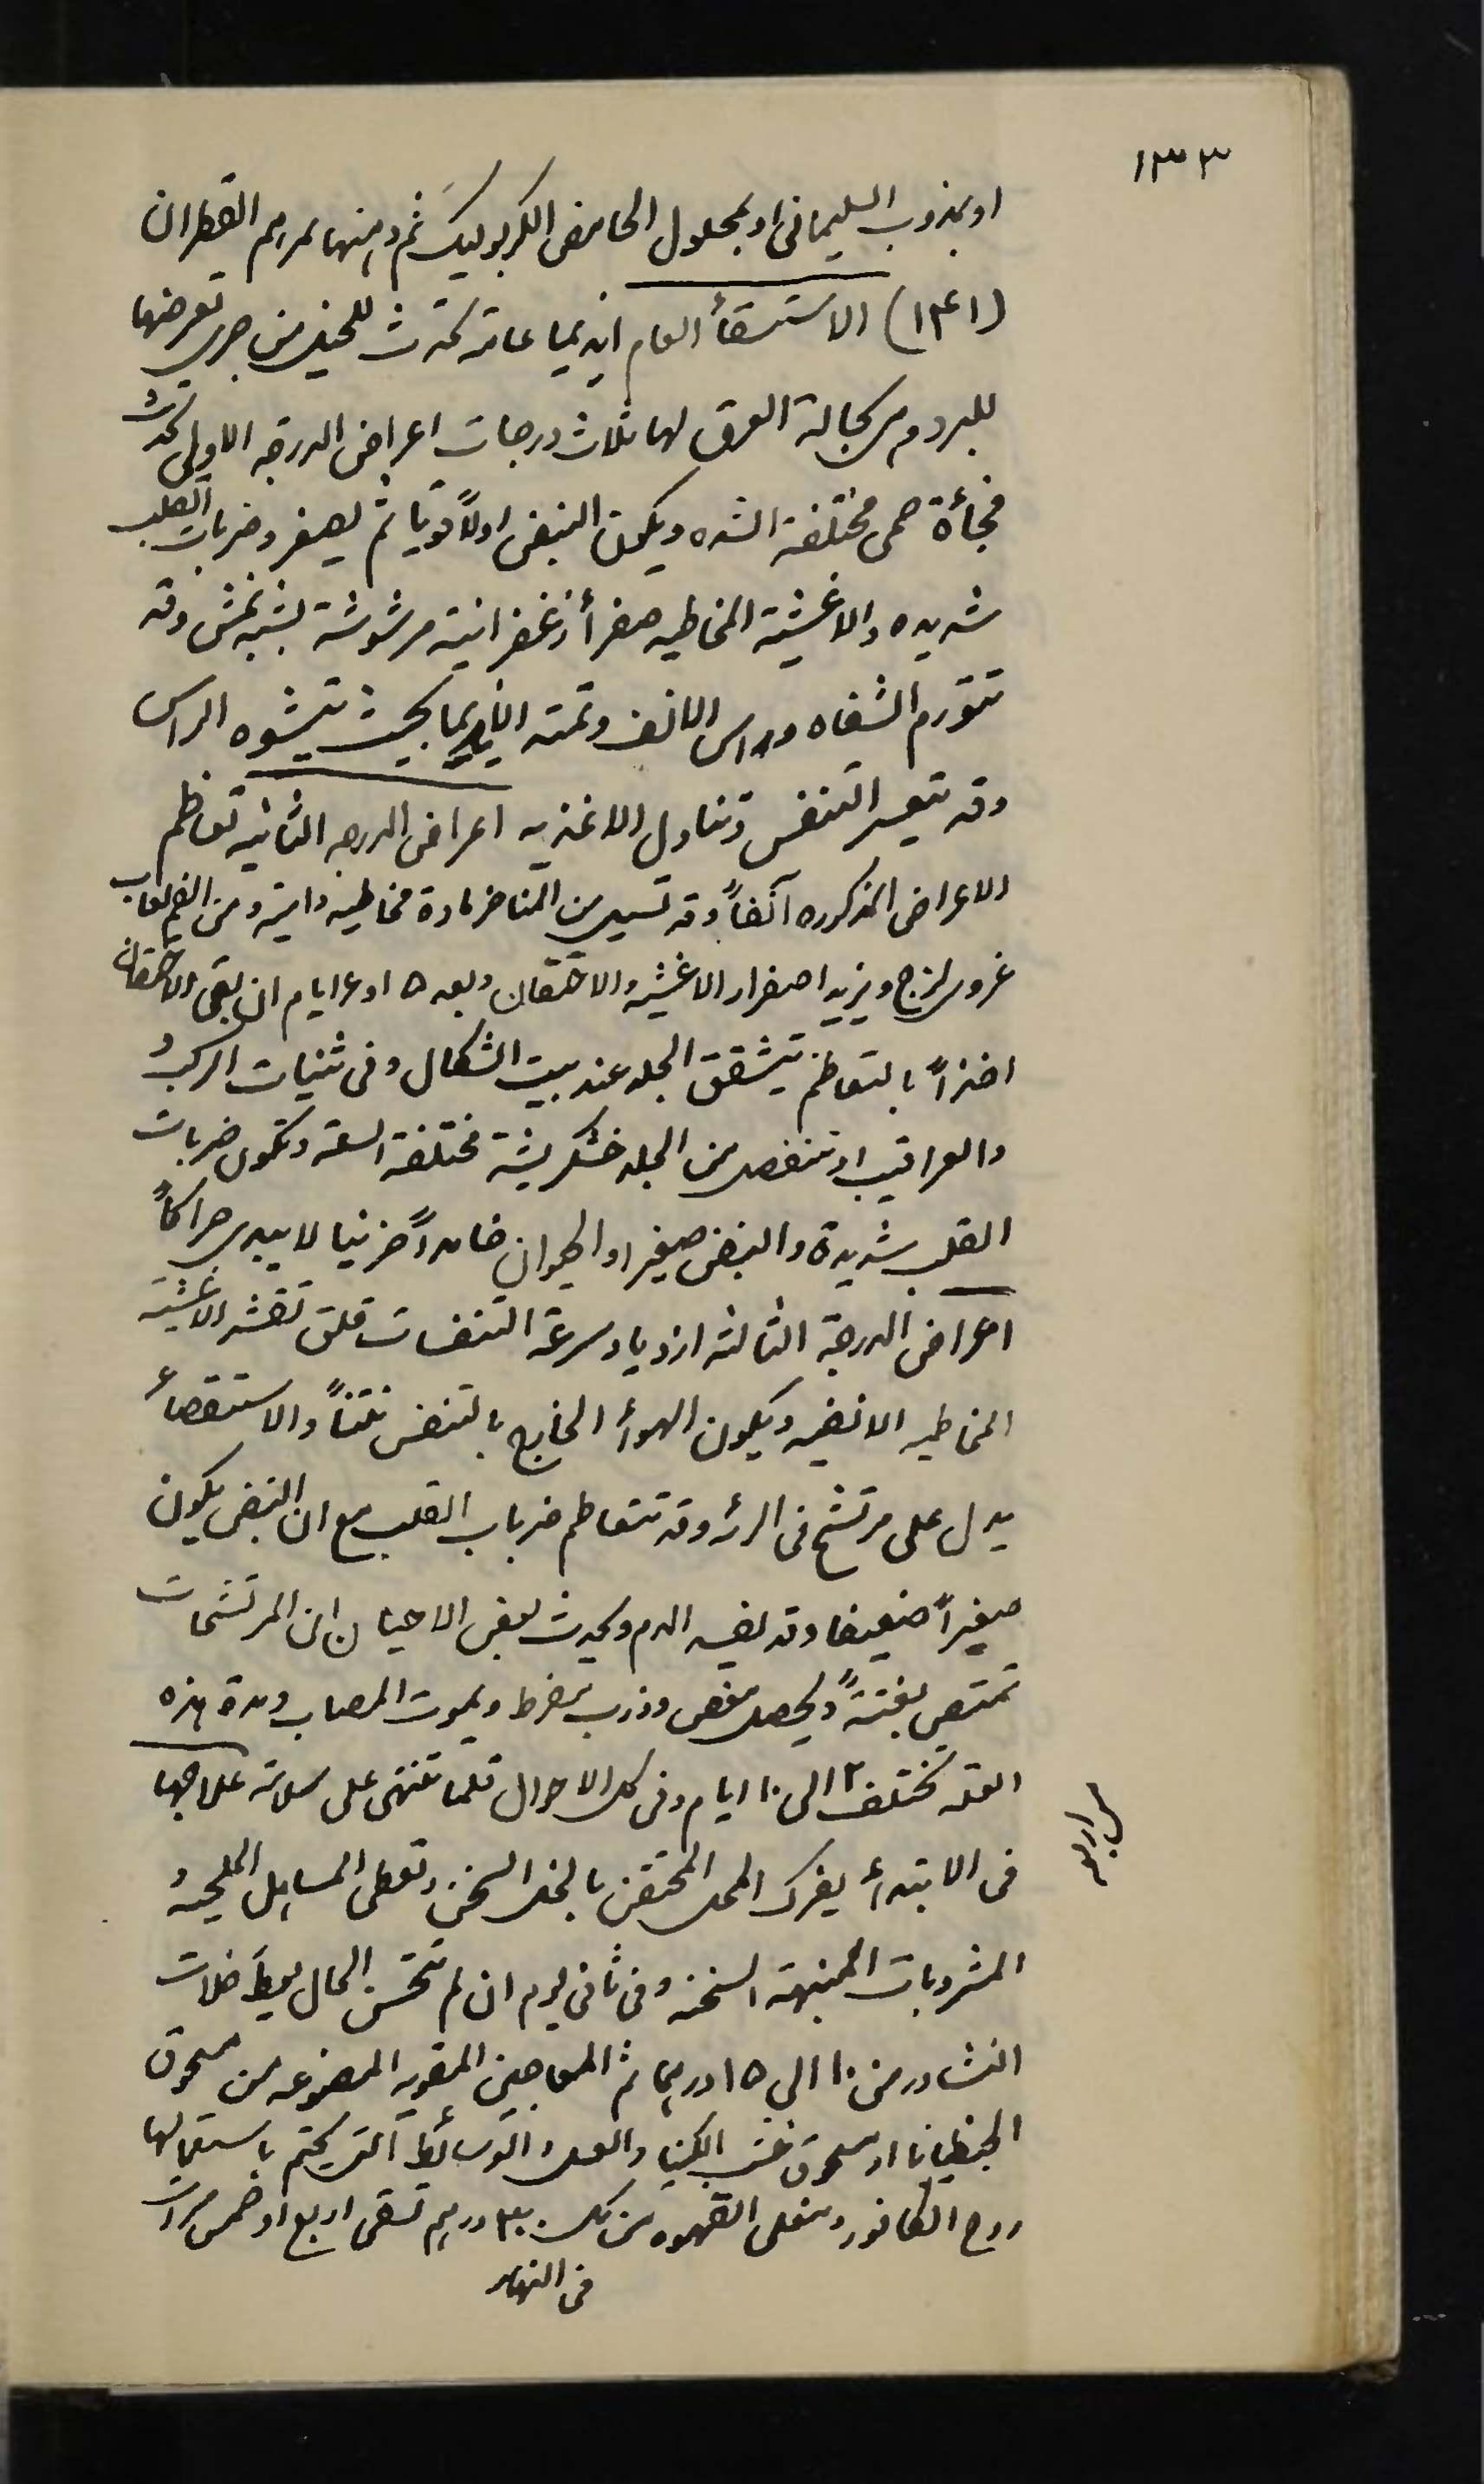 ١٣٣
او بمذوب السليمانى او بمحلول الحامض الكربوليك ثم دهنها بمرهم القطران
(١٣٤١) الاستسقأ العام ايديما عامة تحدث للخيل من جرى تعرضها
للبرد وهى بحالة العرق لها ثلاث درجات اعراض الدرجه الاولى تحدث
فجأة حمى مختلفة الشده ويكون النبض اولاً قويا ثم يصغر وضربات القلب
شديده والاغشية المخاطيه صفرأ زعفرانية مرشوشة بشبه نمش وقد
تتورم الشفاه وراس الانف وتمتد الايديما بحيث يتشوه الراس
وقد يتعسر التنفس وتناول الاغذيه اعراض الدرجه الثانيه تعاظم
الاعراض المذكوره آنفاً وقد تسيل من المناخر مادة مخاطيه دامية ومن الفم لعاب
غروى لزج ويزيد اصفرار الاغشيه والاحتقان وبعد ٥ او ٦ ايام ان بقى الاحتقان
اخذاً بالتعاظم يتشقق الجلد عند بيت الشكال وفى ثنيات الركب و
والعراقيب او تنفصل من الجلد خشكريشة مختلفة السعة وتكون ضربات
القلب شديدة والنبض صغيرا والحيوان خامداً حزينا لا يبدى حراكاً
اعراض الدرجة الثالثه ازدياد سرعة التنفسات قلق تقشر الاغشية
المخاطيه الانفيه ويكون الهوأ الخارج بالتنفس نتناً والاستقصأ
يدل على مرتشح فى الرئه وقد تتعاظم ضربات القلب مع ان النبض يكون
صغيراً ضعيفا وقد يفسد الدم ويحدث بعض الاحيان ان المرتشحات
تمتص بغتةً ويحصل مغص وذرب مفرط ويموت المصاب ومدة هذه
العله تختلف ٢ الى ١٠ ايام وفى كل الاحوال قلما تنتهى على سلامة علاجها
فى الابتدأ يفرك المحل المحتقن بالخل السخن وتعطى المساهل الملحيه و
المشروبات المنبهة السخنه وفى ثانى يوم ان لم تتحسن الحال يعطَ خلات
النشادر من ١٠ الى ١٥ درهما ثم المعاجين المقويه المصنوعه من مسحوق
الجنطيانا او مسحوق خشب الكينا والعسل والوسائط التى يحتم باستعمالها
روح الكافور ومغلى القهوه من كل ٣٠ درهم تسقى اربع او خمس مرات
فى النهار